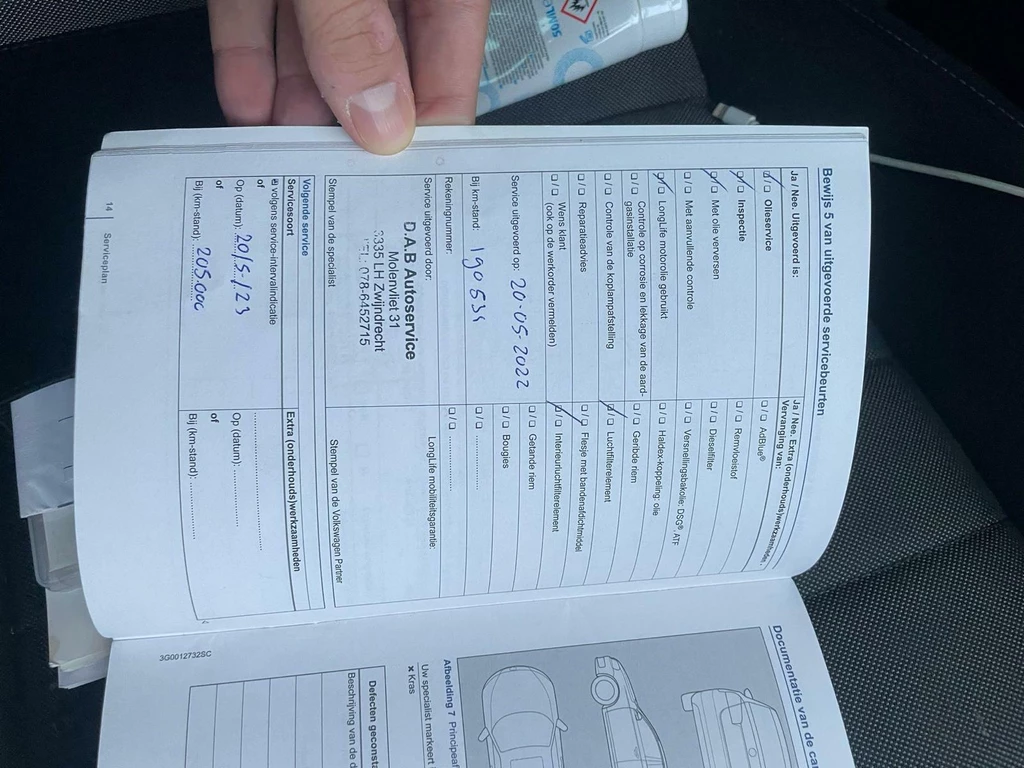 Bewijs 5 van uitgevoerde servicebeurten
Ja / Nee. Uitgevoerd is:
☐/☐ Olieservice
☐/☐ Inspectie
☐/☐ Met olie verversen
☐/☐ Met aanvullende controle
☐/☐ LongLife motorolie gebruikt
☐/☐ Controle op corrosie en lekkage van de aard-
gasinstallatie
☐/☐ Controle van de koplampafstelling
☐/☐ Reparatieadvies
☐/☐ Wens klant
(ook op de werkorder vermelden)
Service uitgevoerd op: 20-05-2022
Bij km-stand: 190534
Rekeningnummer:
Service uitgevoerd door:
D.A.B Autoservice
Molenvliet 31
3335 LH Zwijndrecht
TEL. 078-6452715
Stempel van de specialist
Ja / Nee. Extra (onderhouds)werkzaamheden,
Vervanging van:
☐/☐ AdBlue®
☐/☐ Remvloeistof
☐/☐ Dieselfilter
☐/☐ Versnellingsbakolie: DSG®, ATF
☐/☐ Haldex-koppeling: olie
☐/☐ Geribde riem
☐/☐ Luchtfilterelement
☐/☐ Flesje met bandenafdichtmiddel
☐/☐ Interieurluchtfilterelement
☐/☐ Getande riem
☐/☐ Bougies
☐/☐ ..............
☐/☐ ..............
LongLife mobiliteitsgarantie:
Stempel van de Volkswagen Partner
Volgende service
Servicesoort
volgens service-intervalindicatie
of
Op (datum): 20/5-/23
of
Bij (km-stand): 205.000
Extra (onderhouds)werkzaamheden
..............................
Op (datum): ..............
of
Bij (km-stand): ..............
14 Serviceplan
Documentatie van de car
Afbeelding 7 Principeaf
Uw specialist markeert
× Kras
Defecten geconsta
Beschrijving van de d
3G0012732SC
50ML